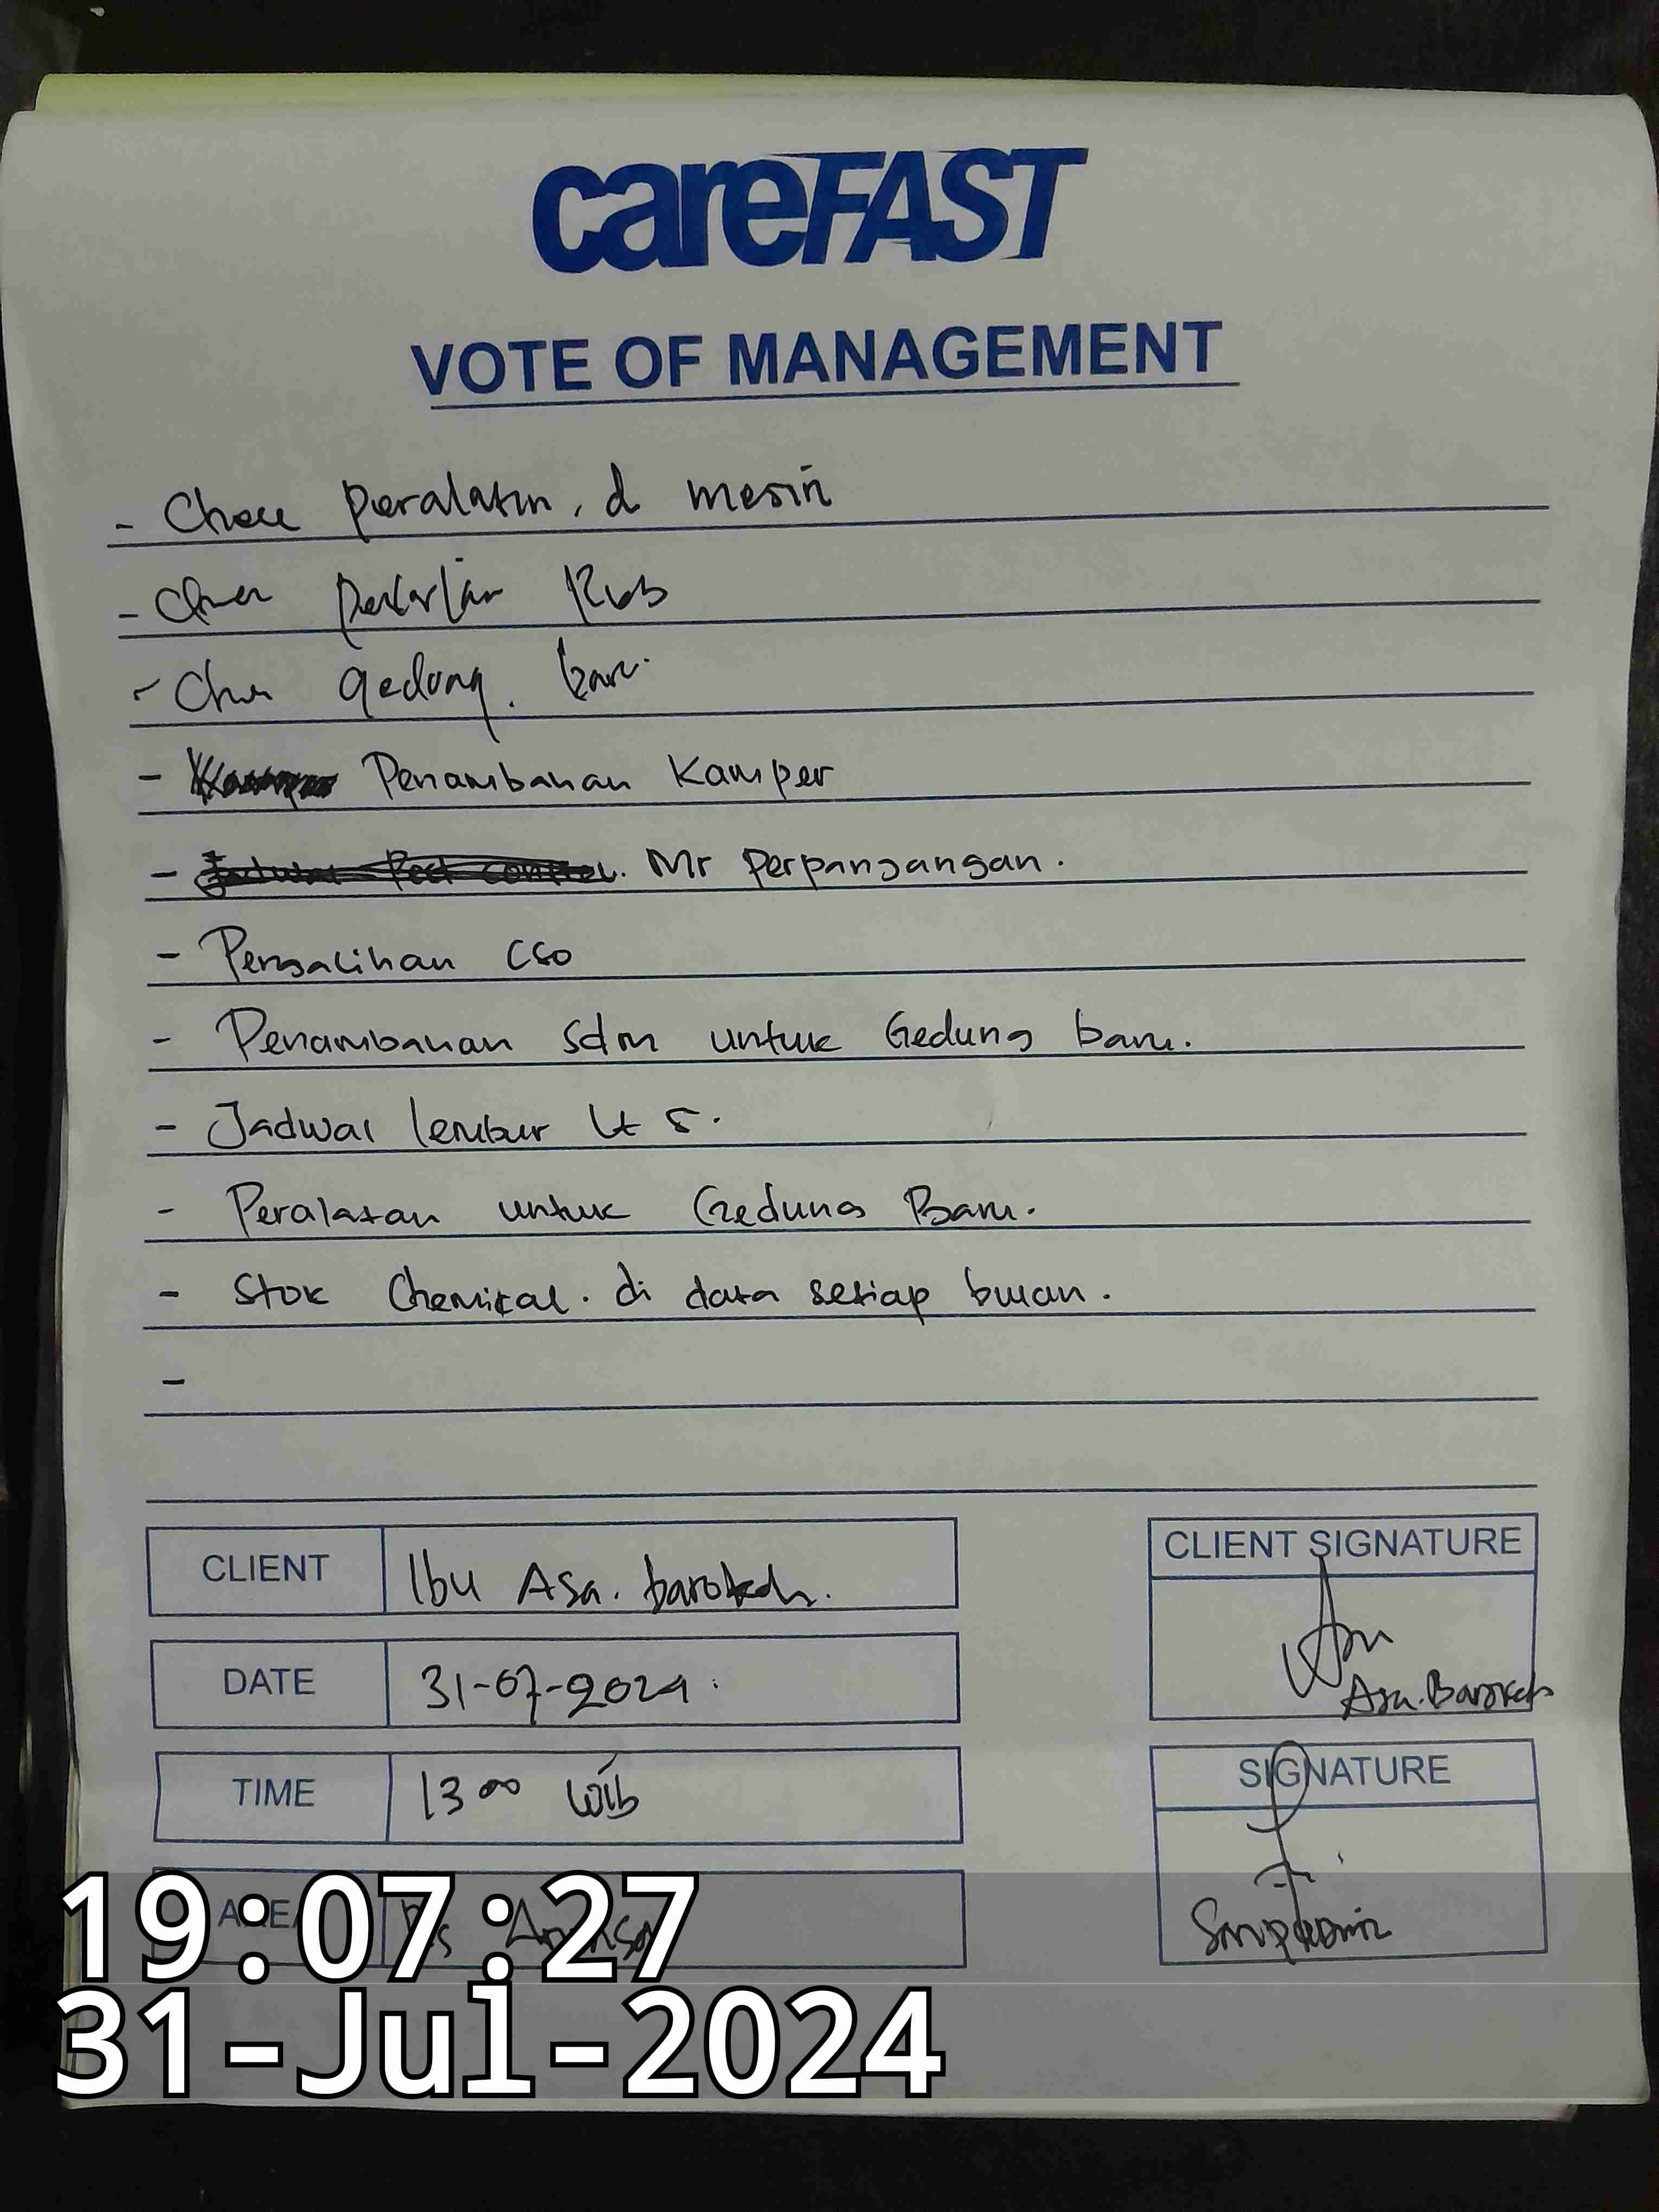 careFAST
VOTE OF MANAGEMENT
- peralatan, d mesin
-
- gedung. baru.
- Penambahan Kamper
- Mr Perpanjangan.
- Pengalihan CSO
- Penambahan Sdm untuk Gedung baru.
- Jadwal lembur Lt 5.
- Peralatan untuk Gedung Baru.
- Stok Chemical. di data setiap bulan.
-
CLIENT Ibu Asa. barokah.
CLIENT SIGNATURE
Asa. Barokah
DATE 31-07-2024.
TIME 13 00 Wib
SIGNATURE
19:07:27
31-Jul-2024